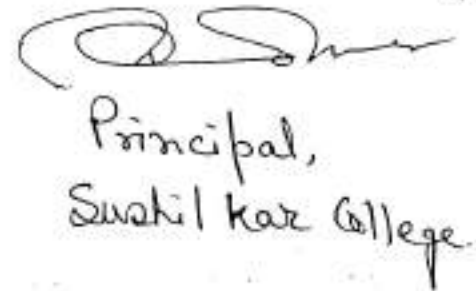 Principal,
Sushil Kar College.